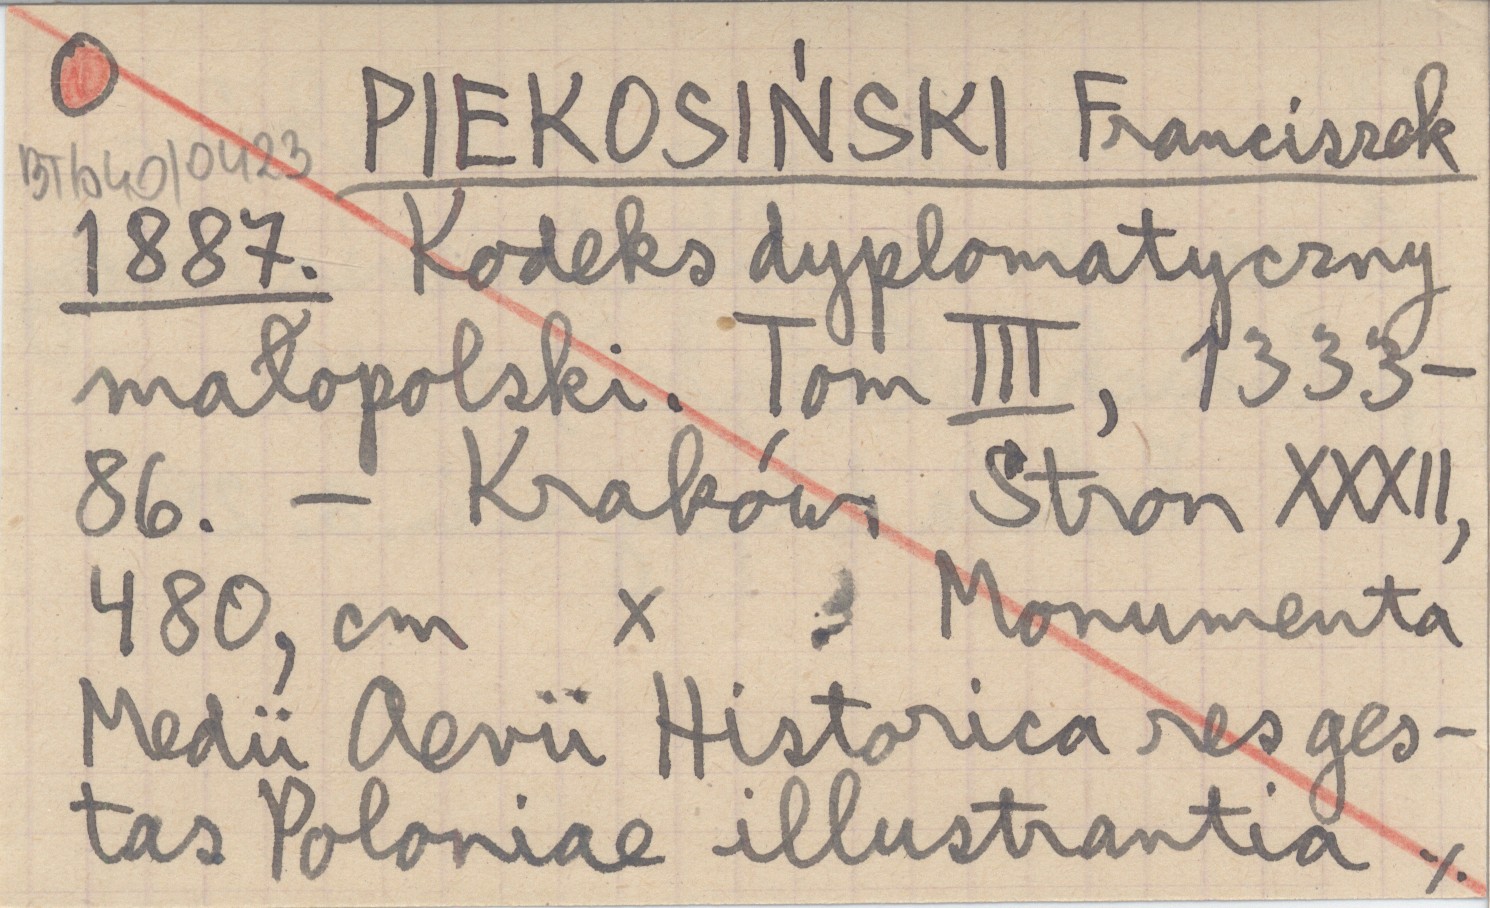 PIEKOSIŃSKI Franciszek
BTb40/0423
1887. Kodeks dyplomatyczny
małopolski. Tom III, 1333-
86. - Kraków, Stron XXXII,
480, cm x Monumenta
Medii Aevii Historica res ges-
tas Poloniae illustrantia ./.